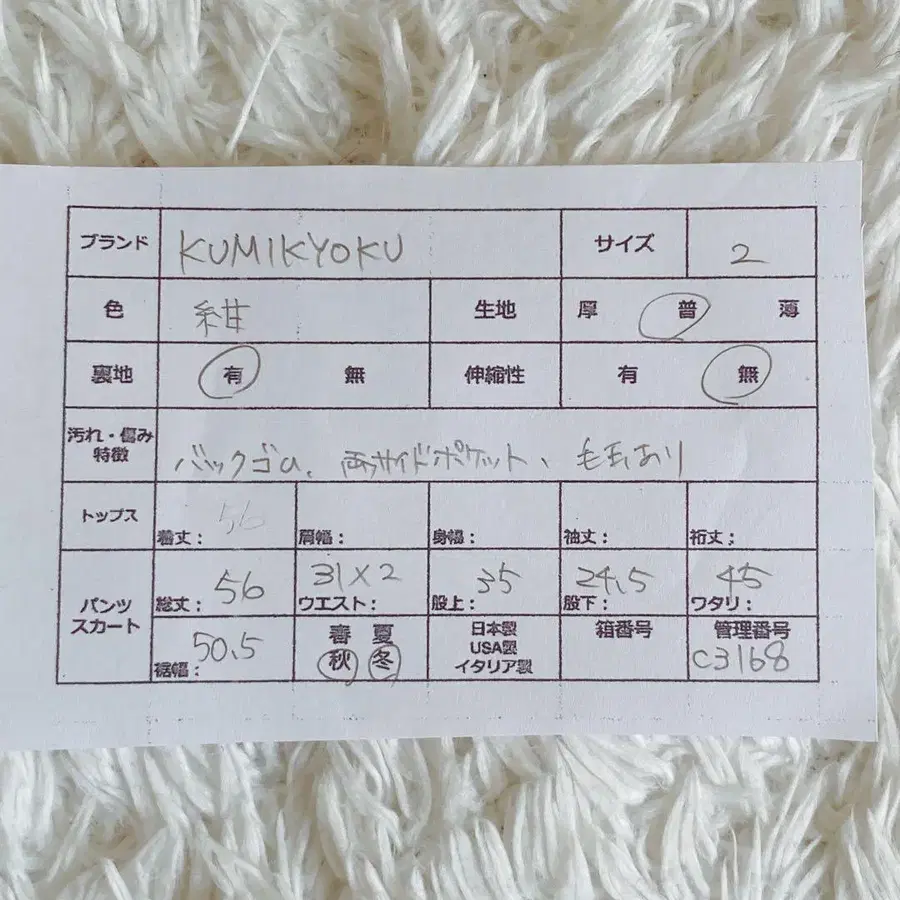 ブランド KUMIKYOKU サイズ 2
色 紺 生地 厚 普 薄
裏地 有 無 伸縮性 有 無
汚れ・傷み
特徴 バックゴム、両サイドポケット、毛玉あり
トップス 着丈： 56 肩幅： 身幅： 袖丈： 裄丈；
パンツ
スカート 総丈： 56 ウエスト： 31×2 股上： 35 股下： 24.5 ワタリ： 45
裾幅： 50.5 春 夏 秋 冬
日本製
USA製
イタリア製
箱番号
管理番号
C3168